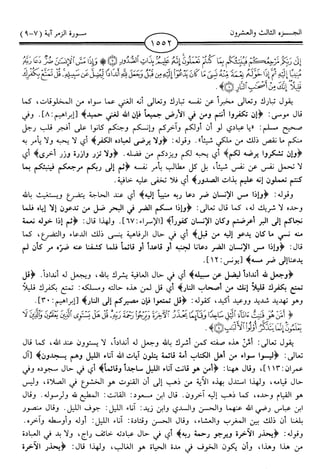 الجـــزء الثالث والعشرون
١٥٥٢
سـورة الزمر آية (٧-٩)
إِلَىٰ رَبِّكُم مَّرْجِعُكُمْ فَيُنَبِّئُكُم بِمَا كُنتُمْ تَعْمَلُونَ إِنَّهُ عَلِيمٌ بِذَاتِ الصُّدُورِ ۞ وَإِذَا مَسَّ الْإِنسَانَ ضُرٌّ دَعَا رَبَّهُ
مُنِيبًا إِلَيْهِ ثُمَّ إِذَا خَوَّلَهُ نِعْمَةً مِّنْهُ نَسِيَ مَا كَانَ يَدْعُو إِلَيْهِ مِن قَبْلُ وَجَعَلَ لِلَّهِ أَندَادًا لِّيُضِلَّ عَن سَبِيلِهِ قُلْ تَمَتَّعْ بِكُفْرِكَ
قَلِيلًا إِنَّكَ مِنْ أَصْحَابِ النَّارِ ۞
يقول تبارك وتعالى مخبراً عن نفسه تبارك وتعالى أنه الغني عما سواه من المخلوقات، كما
قال موسى: ﴿إن تكفروا أنتم ومن في الأرض جميعاً فإن الله لغني حميد﴾ [إبراهيم: ٨]. وفي
صحيح مسلم: «يا عبادي لو أن أولكم وآخركم وإنسكم وجنكم كانوا على أفجر قلب رجل
منكم ما نقص ذلك من ملكي شيئاً». وقوله: ﴿ولا يرضى لعباده الكفر﴾ أي لا يحبه ولا يأمر به
﴿وإن تشكروا يرضه لكم﴾ أي يحبه لكم ويزدكم من فضله. ﴿ولا تزر وازرة وزر أخرى﴾ أي
لا تحمل نفس عن نفس شيئاً، بل كل مطالب بأمر نفسه ﴿ثم إلى ربكم مرجعكم فينبئكم بما
كنتم تعملون إنه عليم بذات الصدور﴾ أي فلا تخفى عليه خافية.
وقوله: ﴿وإذا مس الإنسان ضر دعا ربه منيباً إليه﴾ أي عند الحاجة يتضرع ويستغيث بالله
وحده لا شريك له، كما قال تعالى: ﴿وإذا مسكم الضر في البحر ضل من تدعون إلا إياه فلما
نجاكم إلى البر أعرضتم وكان الإنسان كفوراً﴾ [الإسراء: ٦٧]. ولهذا قال: ﴿ثم إذا خوله نعمة
منه نسي ما كان يدعو إليه من قبل﴾ أي في حال الرفاهية ينسى ذلك الدعاء والتضرع، كما
قال: ﴿وإذا مس الإنسان الضر دعانا لجنبه أو قاعداً أو قائماً فلما كشفنا عنه ضره مر كأن لم
يدعنا إلى ضر مسه﴾ [يونس: ١٢].
﴿وجعل لله أنداداً ليضل عن سبيله﴾ أي في حال العافية يشرك بالله، ويجعل له أنداداً. ﴿قل
تمتع بكفرك قليلاً إنك من أصحاب النار﴾ أي قل لمن هذه حالته ومسلكه: تمتع بكفرك قليلاً،
وهو تهديد شديد ووعيد أكيد، كقوله: ﴿قل تمتعوا فإن مصيركم إلى النار﴾ [إبراهيم: ٣٠].
﴿أَمَّنْ هُوَ قَانِتٌ آنَاءَ اللَّيْلِ سَاجِدًا وَقَائِمًا يَحْذَرُ الْآخِرَةَ وَيَرْجُو رَحْمَةَ رَبِّهِ قُلْ هَلْ يَسْتَوِي الَّذِينَ يَعْلَمُونَ وَالَّذِينَ لَا
يَعْلَمُونَ إِنَّمَا يَتَذَكَّرُ أُولُو الْأَلْبَابِ ۞﴾
يقول تعالى: أمَّنْ هذه صفته كمن أشرك بالله وجعل له أنداداً، لا يستوون عند الله، كما قال
تعالى: ﴿ليسوا سواء من أهل الكتاب أمة قائمة يتلون آيات الله آناء الليل وهم يسجدون﴾ [آل
عمران: ١١٣]، وقال ههنا: ﴿أمن هو قانت آناء الليل ساجداً وقائماً﴾ أي في حال سجوده وفي
حال قيامه، ولهذا استدل بهذه الآية من ذهب إلى أن القنوت هو الخشوع في الصلاة، وليس
هو القيام وحده، كما ذهب إليه آخرون. قال ابن مسعود: القانت: المطيع لله ولرسوله. وقال
ابن عباس رضي الله عنهما والحسن والسدي وابن زيد: آناء الليل: جوف الليل. وقال منصور
بلغنا أن ذلك بين المغرب والعشاء، وقال الحسن وقتادة: آناء الليل: أوله وأوسطه وآخره.
وقوله: ﴿يحذر الآخرة ويرجو رحمة ربه﴾ أي في حال عبادته خائف راج، ولا بد في العبادة
من هذا وهذا، وأن يكون الخوف في مدة الحياة هو الغالب، ولهذا قال: ﴿يحذر الآخرة